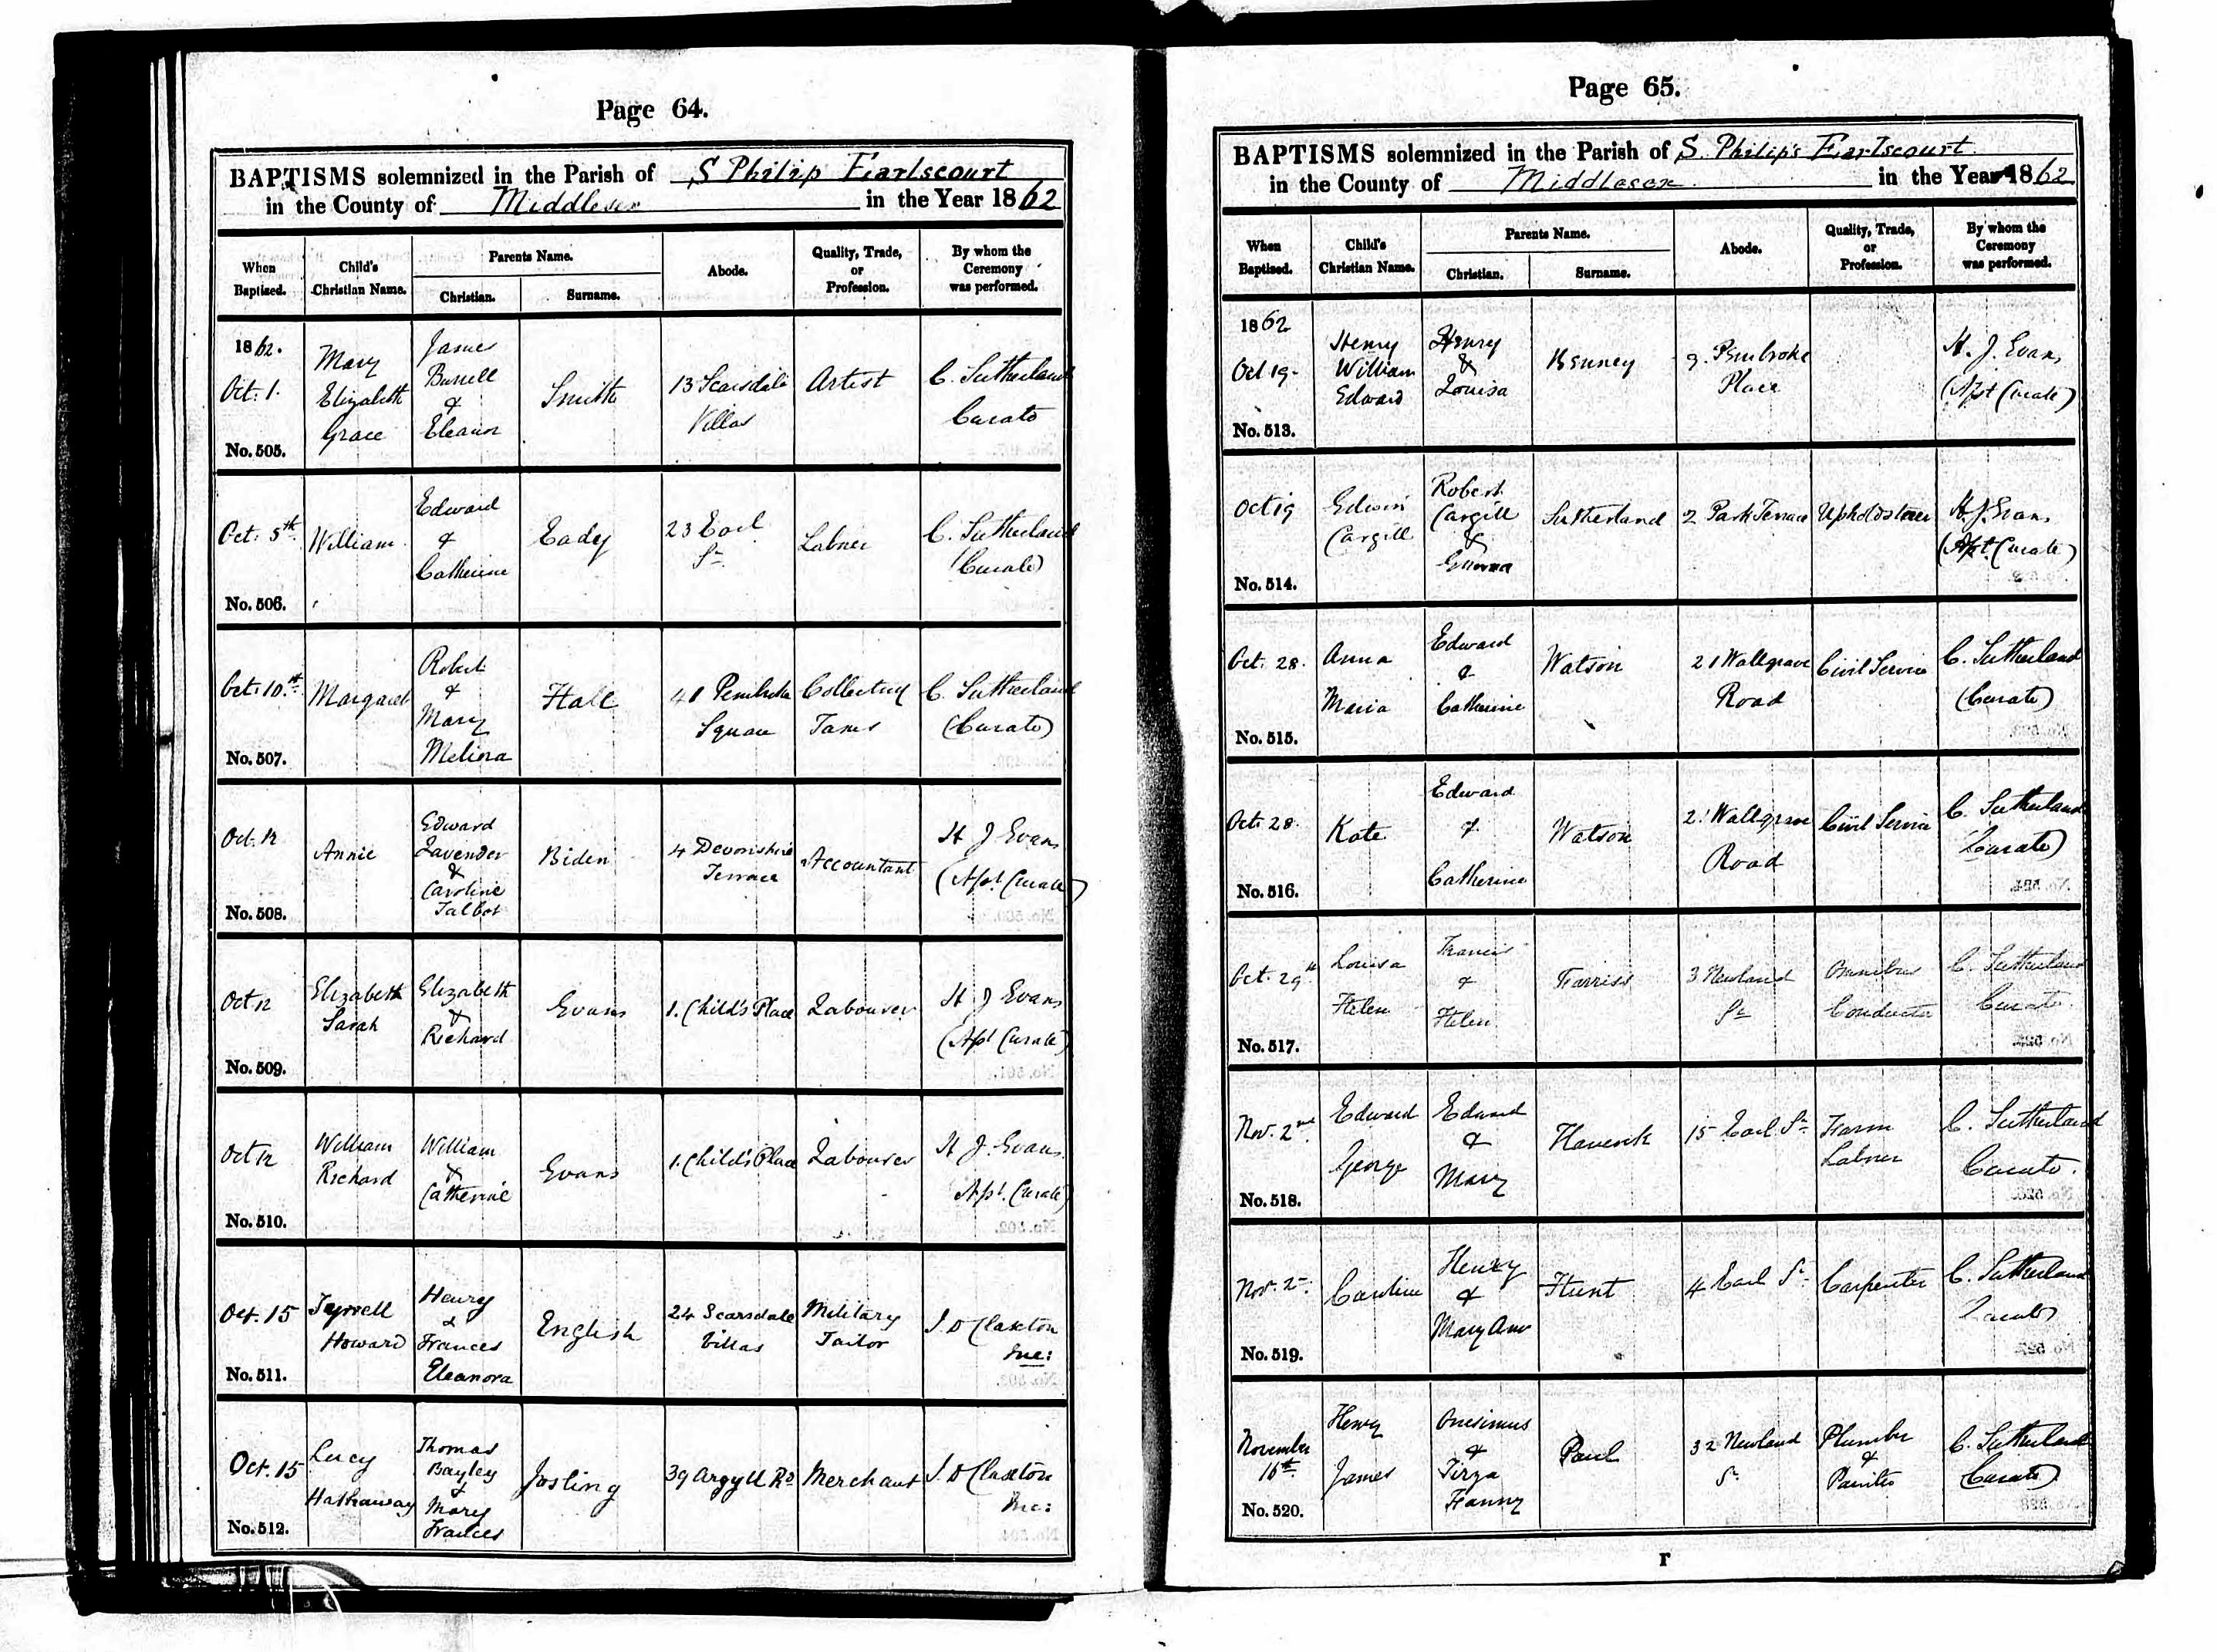 Page 64.
BAPTISMS solemnized in the Parish of S Philip Earlscourt
in the County of Middlesex in the Year 1862
When Baptized. Child's Christian Name. Parents Name. Christian. Surname. Abode. Quality, Trade, or Profession. By whom the Ceremony was performed.
1862.
Oct. 1.
No. 505.
Mary
Elizabeth
Grace
James
Burrell
&
Eleanor
Smith
13 Scarsdale
Villas
Artist
C. Sutherland
Curate
Oct. 5th
No. 506.
William
Edward
&
Catherine
Eady
23 Earl
St
Labner
C. Sutherland
(Curate)
Oct. 10th
No. 507.
Margaret
Robert
&
Mary
Melina
Hall
41 Pembroke
Square
Taxes
C. Sutherland
(Curate)
Oct. 12
No. 508.
Annie
Edward
Lavender
&
Caroline
Talbot
Biden
4 Devonshire
Terrace
Accountant
H J Evans
(Apt Curate)
Oct 12
No. 509.
Elizabeth
Sarah
Elizabeth
&
Richard
Evans
1. Child's Place
Labourer
H J Evans
(Apt Curate)
Oct 12
No. 510.
William
Richard
William
&
Catherine
Evans
1. Child's Place
Labourer
H J. Evans
Apt. Curate)
Oct. 15
No. 511.
Tyrrell
Howard
Henry
&
Frances
Eleanora
English
24 Scarsdale
Villas
Military
Tailor
J. D Claxton
Inc:
Oct. 15
No. 512.
Lucy
Hathaway
Thomas
Bayley
&
Mary
Frances
Josling
39 Argyll Rd
Merchant
J. D Claxton
Inc:
Page 65.
BAPTISMS solemnized in the Parish of S. Philip's Earlscourt
in the County of Middlesex in the Year 1862
When Baptized. Child's Christian Name. Parents Name. Christian. Surname. Abode. Quality, Trade, or Profession. By whom the Ceremony was performed.
1862
Oct 19.
No. 513.
Henry
William
Edward
Henry
&
Louisa
Kenney
Pembroke
Place
H. J. Evans
(Apt Curate)
Oct 19
No. 514.
Edwin
Cargill
Robert
Cargill
&
Emma
Sutherland
2 Park Terrace
Upholdsterer
H. J. Evans
(Apt. Curate)
Oct. 28.
No. 515.
Anna
Maria
Edward
&
Catherine
Watson
21 Wallgrave
Road
Civil Service
C. Sutherland
(Curate)
Oct. 28.
No. 516.
Kate
Edward
&
Catherine
Watson
21 Wallgrave
Road
Civil Service
C. Sutherland
(Curate)
Oct. 29th
No. 517.
Louisa
Helen
Francis
&
Helen
Farriss
3 Newland
St
Omnibus
Conductor
C. Sutherland
Curate
Nov. 2nd
No. 518.
Edward
George
Edward
&
Mary
15 Earl St
Farm
Labner
C. Sutherland
Curate.
Nov. 2
No. 519.
Caroline
Henry
&
Mary Ann
Hunt
4 Earl St
Carpenter
C. Sutherland
Curate
November
16th
No. 520.
Henry
James
Onesimus
&
Tirza
Fanny
Paul
32 Newland
St
Plumber
&
Painter
C. Sutherland
(Curate)
F